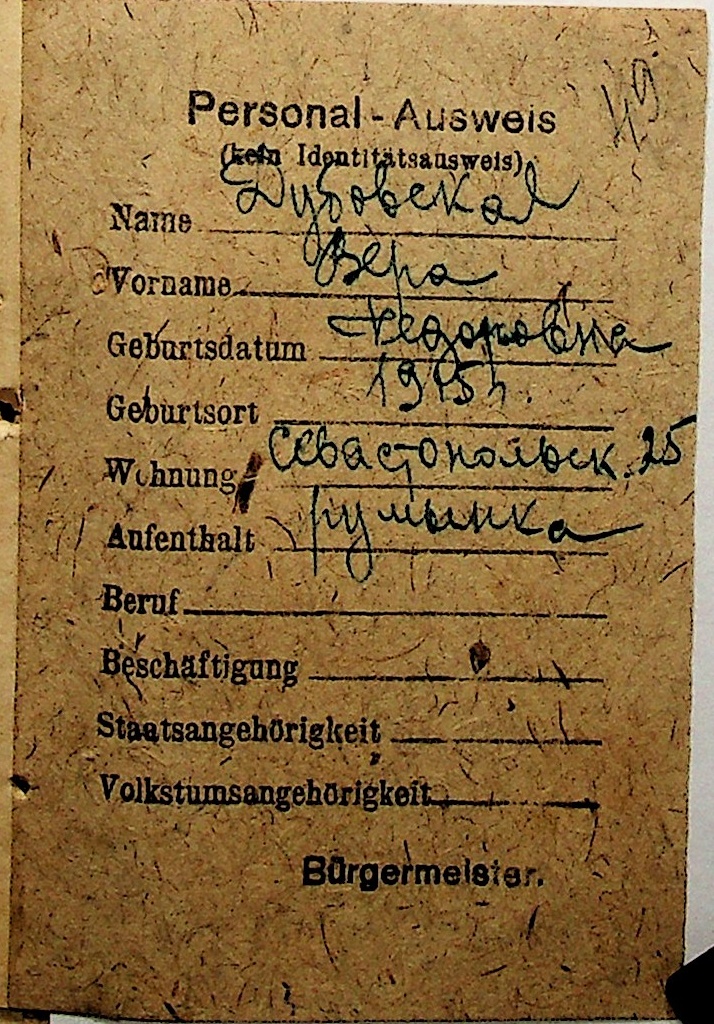 49.
Personal-Ausweis
(kein Identitätsausweis).
Name Дубовская
Vorname Вера
Geburtsdatum Федоровна
Geburtsort 1915 г.
Wohnung Севастопольск. 25
Aufenthalt румынка
Beruf
Beschäftigung
Staatsangehörigkeit
Volkstumsangehörigkeit
Bürgermeister.